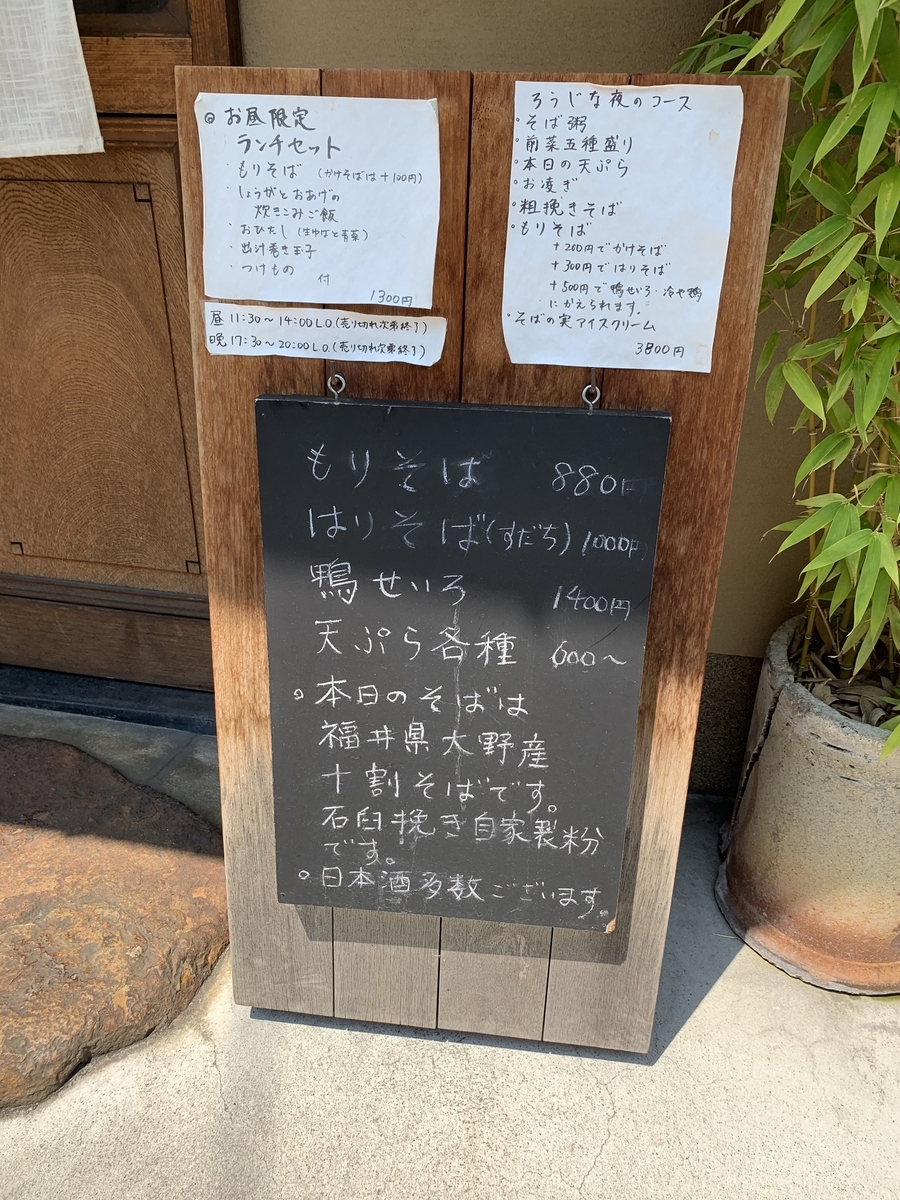 ◎お昼限定
ランチセット
・もりそば (かけそばは+100円)
・しょうがとおあげの
炊きこみご飯
・おひたし(生ゆばと青菜)
・出汁巻き玉子
・つけもの
付
1300円
昼 11:30~14:00 L.O.(売り切れ次第終了)
晩 17:30~20:00 L.O.(売り切れ次第終了)
ろうじな夜のコース
・そば粥
・前菜五種盛り
・本日の天ぷら
・お凌ぎ
・粗挽きそば
・もりそば
+200円でかけそば
+300円ではりそば
+500円で鴨せいろ・冷や鴨
にかえられます。
・そばの実アイスクリーム
3800円
もりそば 880円
はりそば(すだち) 1000円
鴨せいろ 1400円
天ぷら各種 600~
。本日のそばは
福井県大野産
十割そばです。
石臼挽き自家製粉
です。
。日本酒多数ございます。